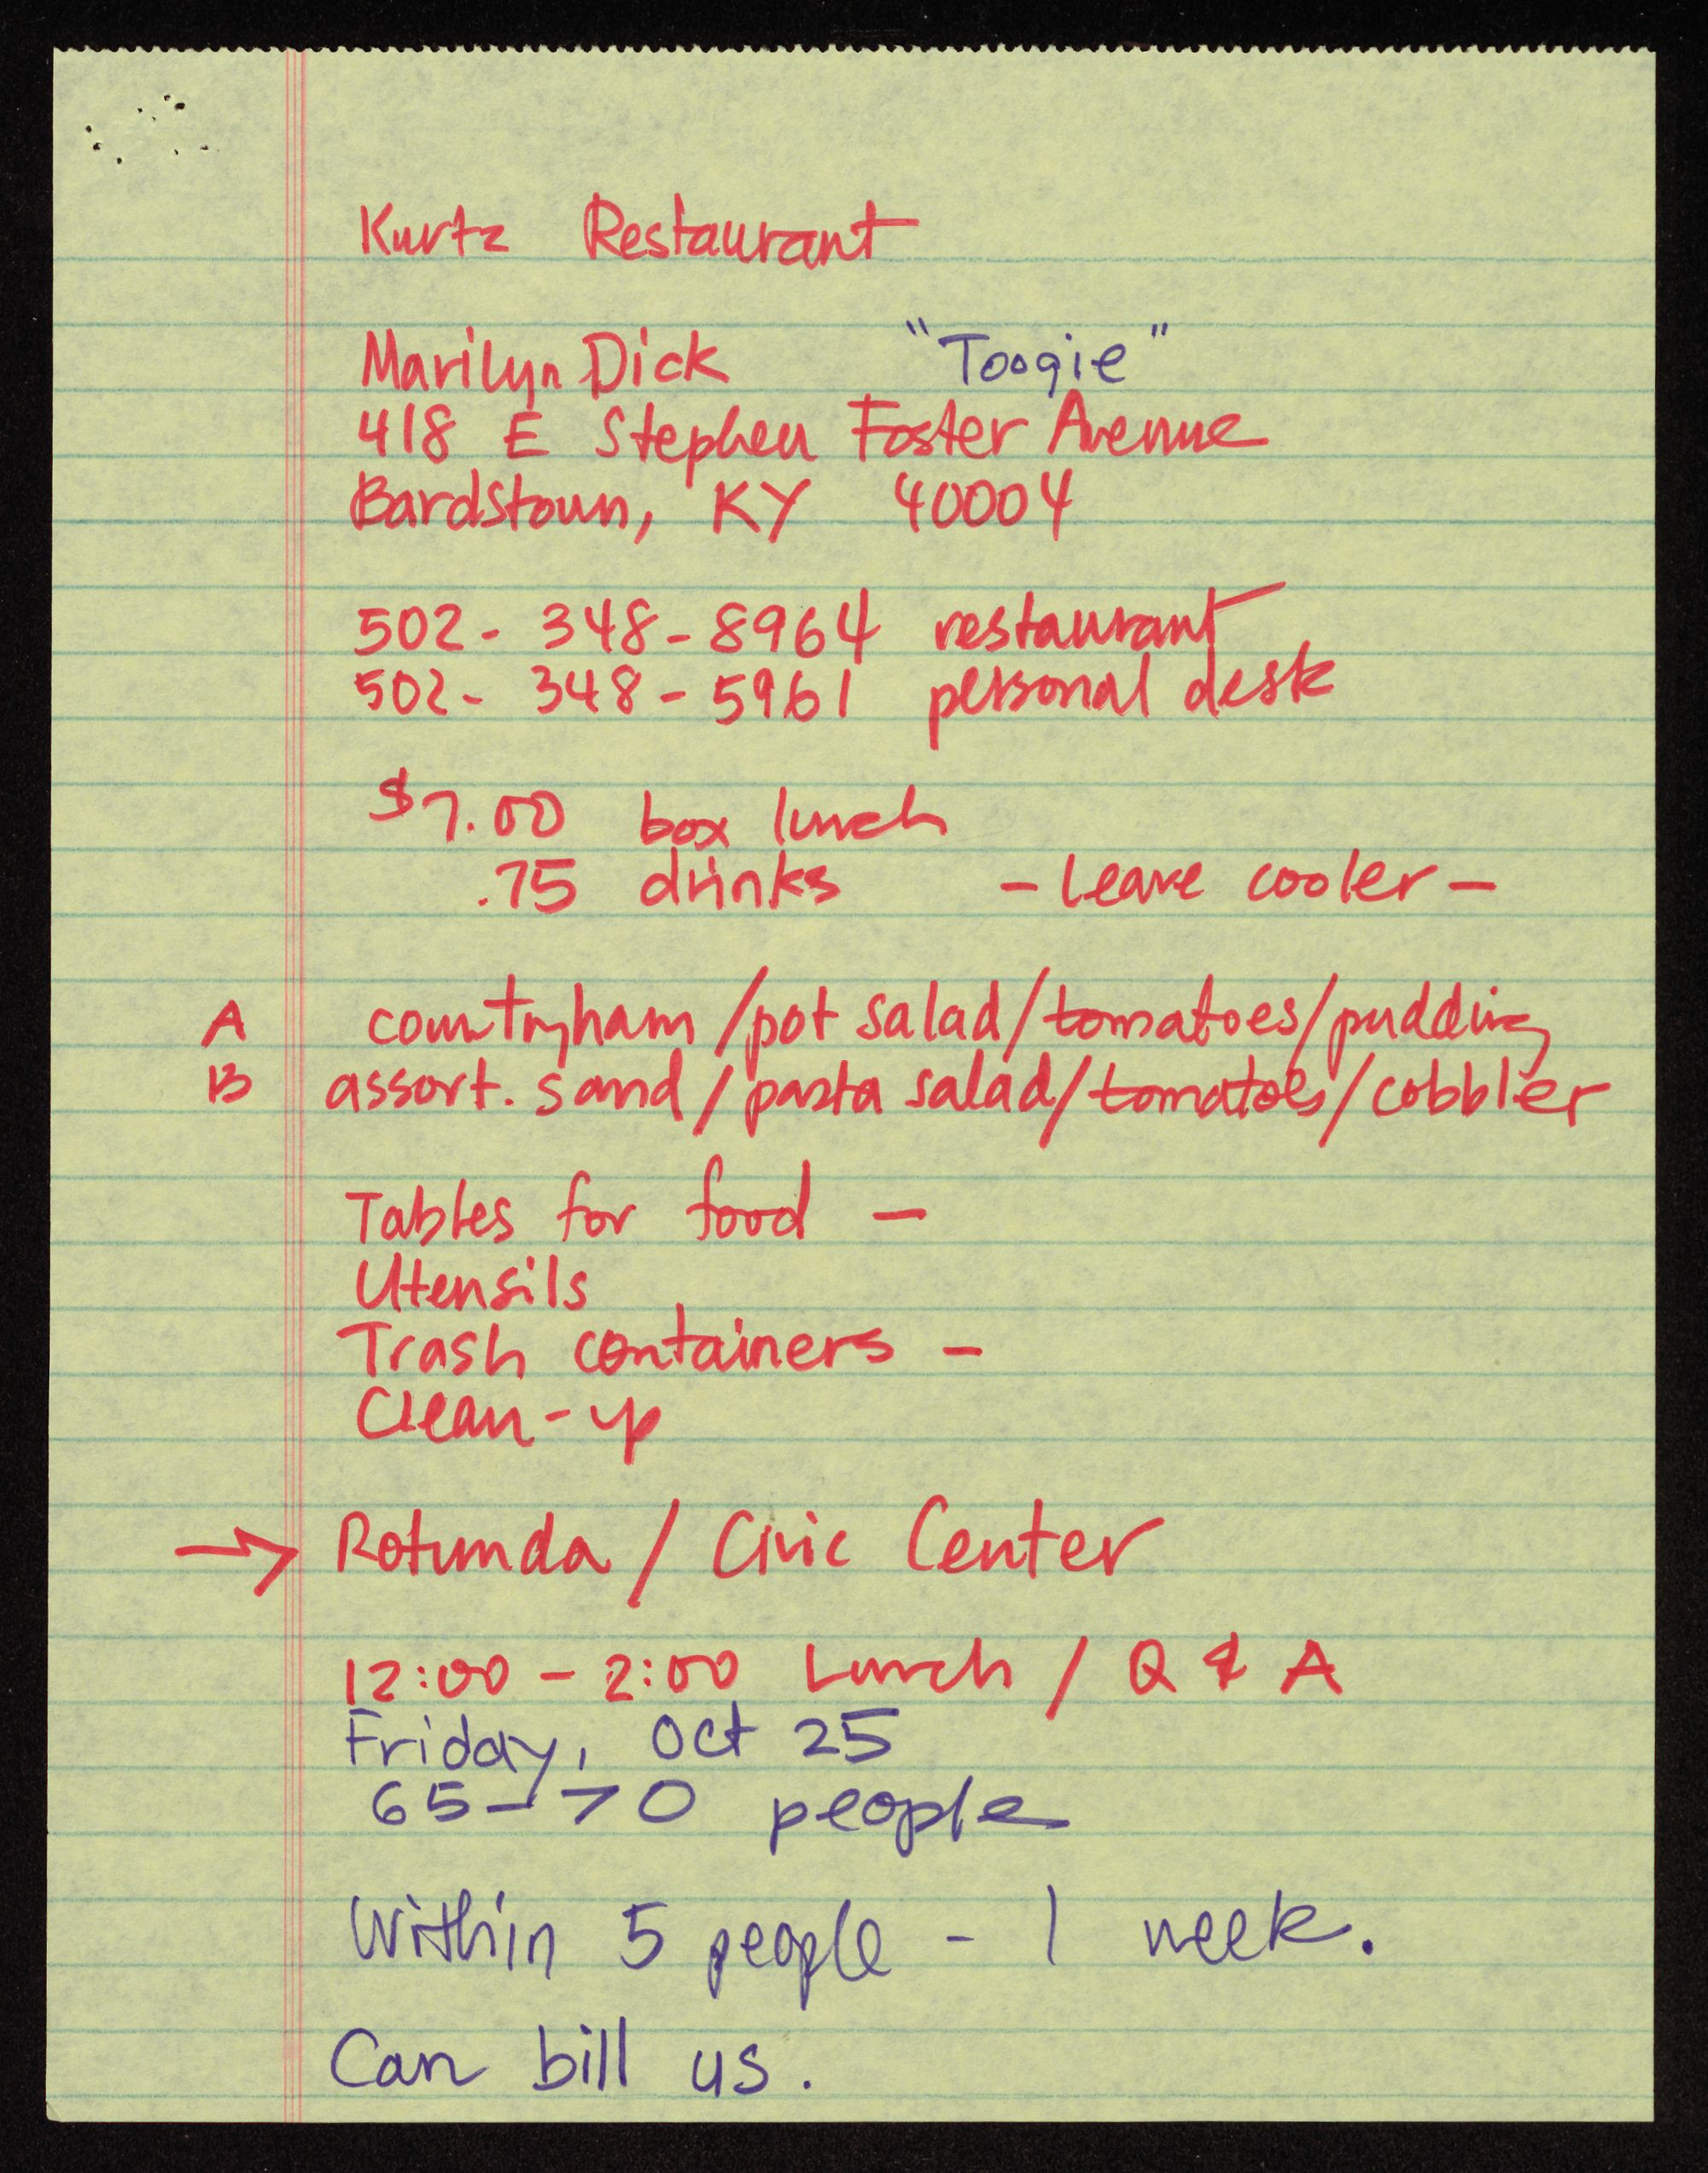 Kurtz Restaurant
Marilyn Dick "Toogie"
418 E Stephen Foster Avenue
Bardstown, KY 40004
502-348-8964 restaurant
502-348-5961 personal desk
$7.00 box lunch
.75 drinks - Leave cooler -
A countryham / pot salad / tomatoes / pudding
B assort. sand / pasta salad / tomatoes / cobbler
Tables for food -
Utensils
Trash containers -
Clean-up
→ Rotunda / Civic Center
12:00 - 2:00 Lunch / Q & A
Friday, Oct 25
65-70 people
Within 5 people - 1 week.
Can bill us.